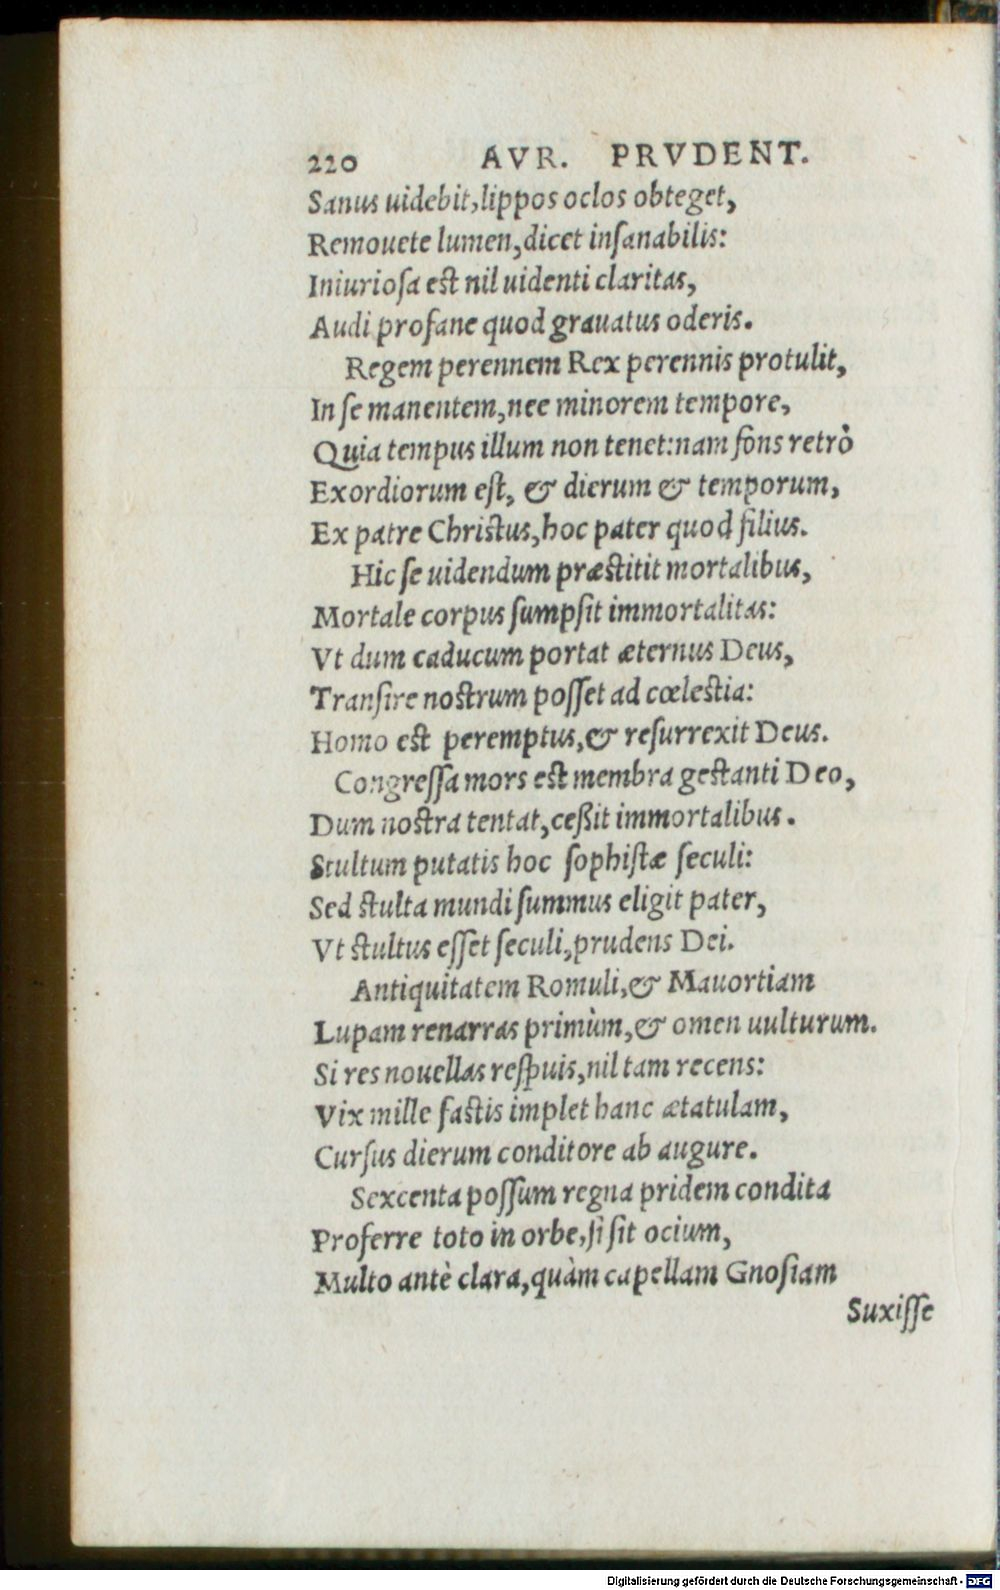 220 AVR. PRVDENT.
Sanus uidebit, lippos oclos obteget,
Remouete lumen, dicet insanabilis:
Iniuriosa est nil uidenti claritas,
Audi profane quod grauatus oderis.
Regem perennem Rex perennis protulit,
In se manentem, nec minorem tempore,
Quia tempus illum non tenet: nam fons retrò
Exordiorum est, & dierum & temporum,
Ex patre Christus, hoc pater quod filius.
Hic se uidendum præstitit mortalibus,
Mortale corpus sumpsit immortalitas:
Vt dum caducum portat æternus Deus,
Transire nostrum posset ad cœlestia:
Homo est peremptus, & resurrexit Deus.
Congressa mors est membra gestanti Deo,
Dum nostra tentat, ceßit immortalibus.
Stultum putatis hoc sophistæ seculi:
Sed stulta mundi summus eligit pater,
Vt stultus esset seculi, prudens Dei.
Antiquitatem Romuli, & Mauortiam
Lupam renarras primùm, & omen uulturum.
Si res nouellas respuis, nil tam recens:
Vix mille fastis implet hanc ætatulam,
Cursus dierum conditore ab augure.
Sexcenta possum regna pridem condita
Proferre toto in orbe, si sit ocium,
Multo antè clara, quàm capellam Gnosiam
Suxisse
Digitalisierung gefördert durch die Deutsche Forschungsgemeinschaft - DFG